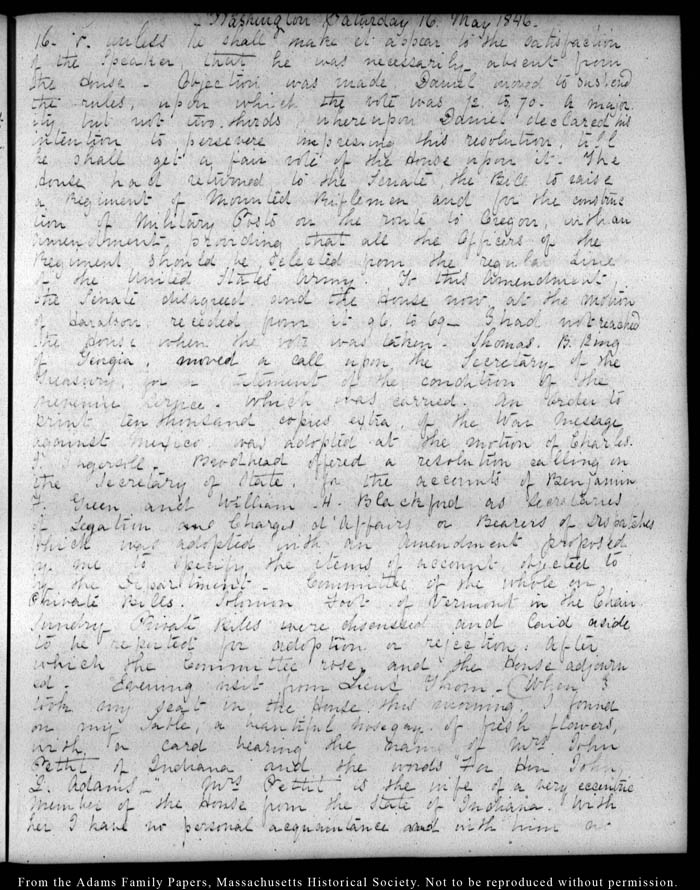 Washington Saturday 16. May 1846.
16. V. unless he shall make it appear to the satisfaction
of the Speaker, that he was necessarily absent from
the House - Objection was made, Daniel moved to suspend
the rules, upon which the vote was 72 to 70. a major
ity but not two thirds, whereupon Daniel declared his
intention to persevere in pressing this resolution, till
he shall get a fair vote of the House upon it. The
House had returned to the Senate, the Bill to raise
a Regiment of Mounted Riflemen and for the construc
tion of Military Posts on the route to Oregon, with an
amendment, providing that all the Officers of the
Regiment should be selected from the regular line
of the United States Army. To this amendment
the Senate disagreed and the House now, at the motion
of Haralson receded from it 96 to 69 - I had not reached
the House when the vote was taken - Thomas. B. King
of Georgia, moved a call upon the Secretary of the
Treasury, for a statement of the condition of the
revenue service. which was carried. An order to
print ten thousand copies extra, of the War Message
against Mexico was adopted at the motion of Charles.
J. Ingersoll - Brodhead offered a resolution calling on
the Secretary of State, for the accounts of Benjamin
Green and William H. Blackford as Secretaries
of Legation and Chargés d'Affairs or Bearers of Dispatches
which was adopted with an amendment proposed
by me to specify the items of account, objected to
by the Department - Committee of the whole on
Private Bills. Solomon Foot of Vermont in the Chair
Sundry Private Bills were discussed and laid aside
to be reported for adoption or rejection. After
which the Committee rose, and the House adjourn
ed - Evening visit from Lieut Thom - When I
took my seat in the House this morning, I found
on my table, a beautiful nosegay of fresh flowers,
with a card bearing the name of Mrs John
Pettit of Indiana and the words "For Hon John
Q. Adams -" Mrs Pettit is the wife of a very eccentric
member of the House from the State of Indiana. With
her I have no personal acquaintance and with him no
From the Adams Family Papers, Massachusetts Historical Society. Not to be reproduced without permission.